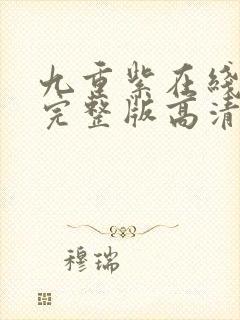 九重紫在线
完整版高清
穆瑞